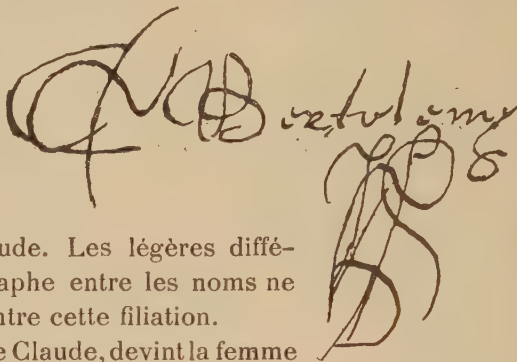 Bertolomy
ude. Les légères diffé-
aphe entre les noms ne
ntre cette filiation.
e Claude, devint la femme